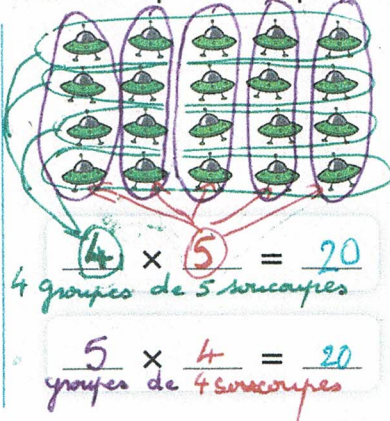 4 × 5 = 20
4 groupes de 5 soucoupes
5 × 4 = 20
groupes de 4 soucoupes